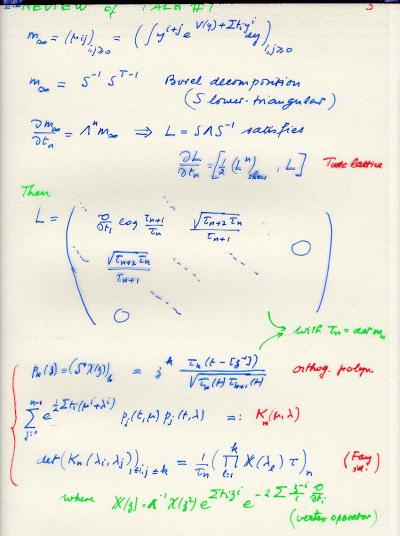 REVIEW of TALK #1 3
m∞ = (μij)i,j≥0 = (∫ y^{i+j} e^{V(y)+Σ ti y^i} dy)i,j≥0
m∞ = S^{-1} S^{T-1} Borel decomposition
(S lower-triangular)
∂m∞/∂tn = Λ^n m∞ ⇒ L = SΛS^{-1} satisfies
∂L/∂tn = [½ (L^n)skew , L] Toda lattice
Then
L = ( ∂/∂t1 log τn+1/τn √(τn+2 τn)/τn+1
√(τn+2 τn)/τn+1 0
0 )
with τn = det mn
pk(z) = (Sχ(z))k = z^k τk(t − [z^{-1}]) / √(τk(t) τk+1(t)) orthog. polyn
Σ_{j=0}^{n-1} e^{½Σti(μ^i+λ^i)} pj(t,μ) pj(t,λ) =: Kn(μ,λ)
det(Kn(λi,λj))1≤i,j≤k = 1/τn (∏_{l=1}^{k} X(λl) τ)n (Fay id.)
where X(z) = Λ^{-1} χ(z²) e^{Σ ti z^i} e^{-2 Σ z^{-i}/i ∂/∂ti}
(vertex operator)